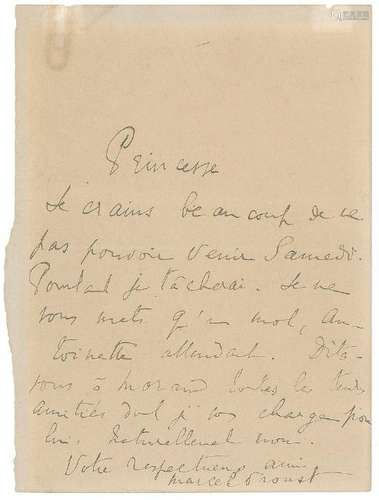 Princesse
Je crains beaucoup de ne
pas pouvoir venir Samedi.
Pourtant je tâcherai. Je ne
vous mets qu'un mot, An-
toinette attendant. Dites
vous à Morand toutes les tendres
amitiés dont je vous charge pour
lui. Naturellement
Votre respectueux ami
Marcel Proust